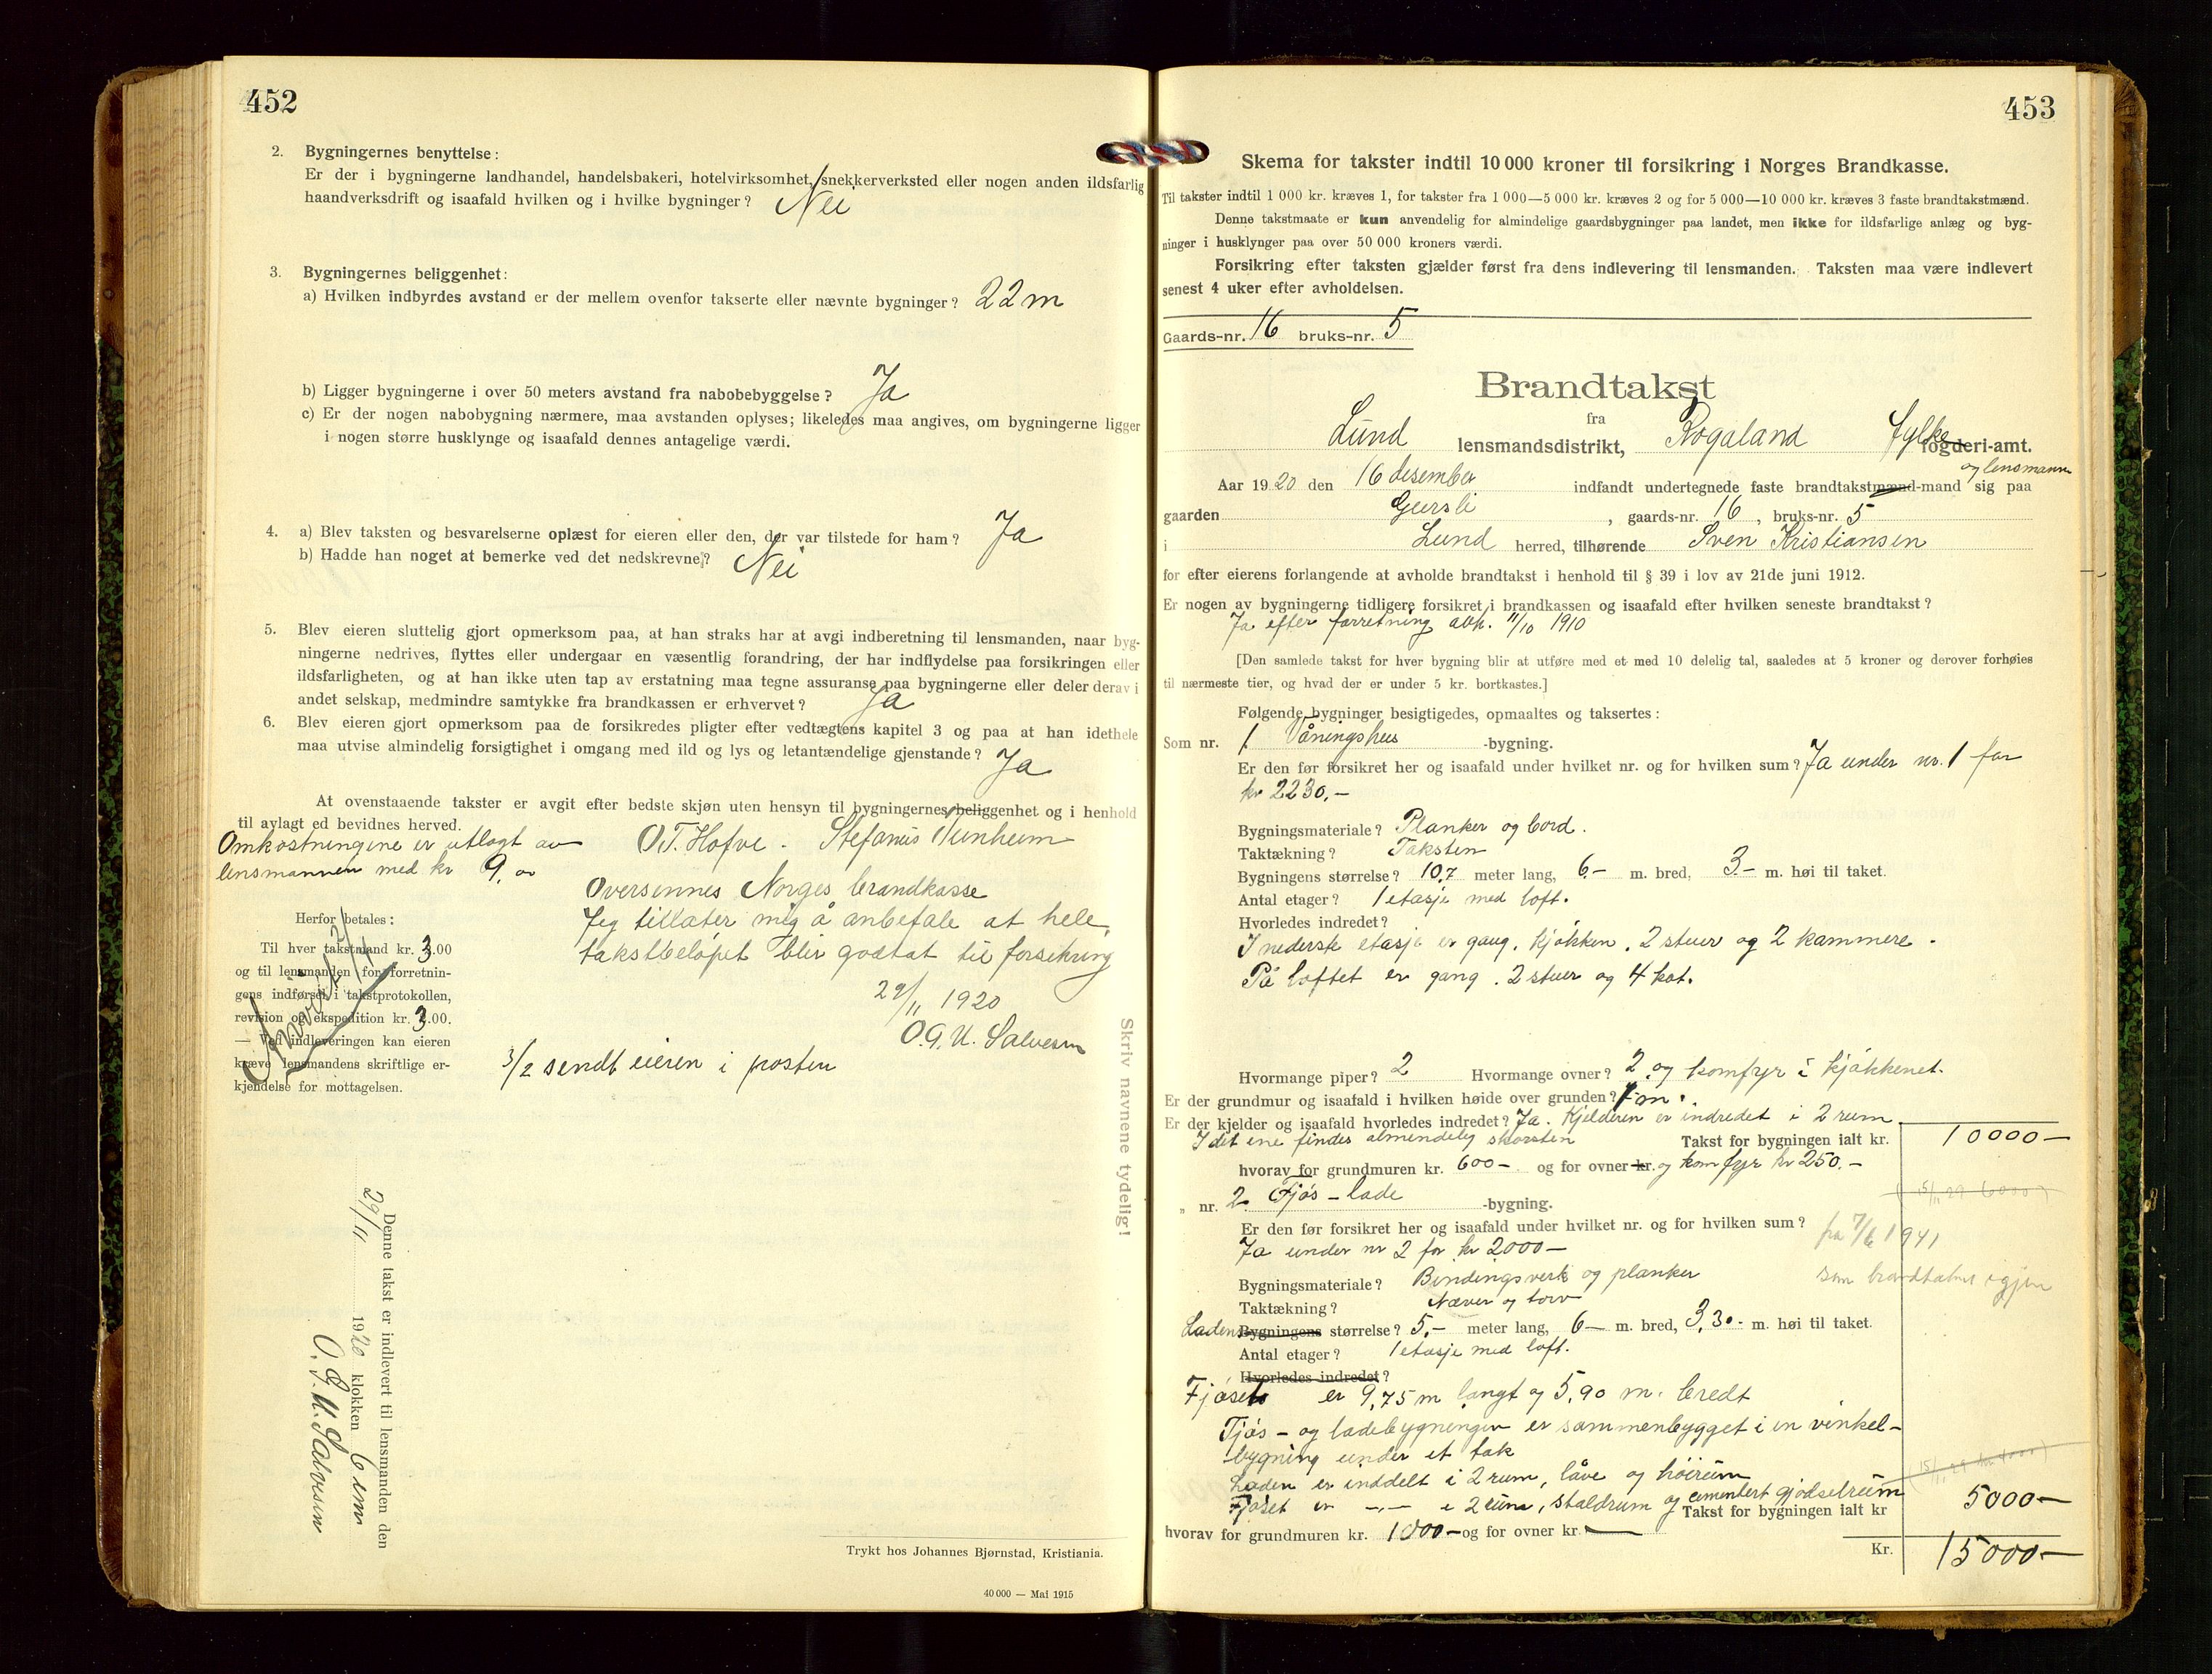 452
2. Bygningernes benyttelse:
Er der i bygningerne landhandel, handelsbakeri, hotelvirksomhet, snekkerverksted eller nogen anden ildsfarlig
haandverksdrift og isaafald hvilken og i hvilke bygninger? Nei
3. Bygningernes beliggenhet:
a) Hvilken indbyrdes avstand er der mellem ovenfor takserte eller nævnte bygninger? 22 m
b) Ligger bygningerne i over 50 meters avstand fra nabobebyggelse? Ja
c) Er der nogen nabobygning nærmere, maa avstanden oplyses; likeledes maa angives, om bygningerne ligger
i nogen større husklynge og isaafald dennes antagelige værdi.
4. a) Blev taksten og besvarelserne oplæst for eieren eller den, der var tilstede for ham? Ja
b) Hadde han noget at bemerke ved det nedskrevne? Nei
5. Blev eieren sluttelig gjort opmerksom paa, at han straks har at avgi indberetning til lensmanden, naar byg-
ningerne nedrives, flyttes eller undergaar en væsentlig forandring, der har indflydelse paa forsikringen eller
ildsfarligheten, og at han ikke uten tap av erstatning maa tegne assuranse paa bygningerne eller deler derav i
andet selskap, medmindre samtykke fra brandkassen er erhvervet? Ja
6. Blev eieren gjort opmerksom paa de forsikredes pligter efter vedtægtens kapitel 3 og paa at han idethele
maa utvise almindelig forsigtighet i omgang med ild og lys og letantændelige gjenstande? Ja
At ovenstaaende takster er avgit efter bedste skjøn uten hensyn til bygningernes beliggenhet og i henhold
til avlagt ed bevidnes herved.
Omkostningene er utlagt av
lensmannen med kr 9,00
O.T. Hofve. Stefanus
Oversennes Norges brandkasse
Jeg tillater mig å anbefale at hele
takstbeløpet blir godtat til forsikring
29/11 1920
O.G.U. Salvesen
3/2 sendt eieren i posten
Herfor betales:
Til hver takstmand kr. 3.00
og til lensmanden for forretnin-
gens indførsel i takstprotokollen,
revision og ekspedition kr. 3.00.
— Ved indleveringen kan eieren
kræve lensmandens skriftlige er-
kjendelse for mottagelsen.
Skriv navnene tydelig!
Denne takst er indlevert til lensmanden den
29/11 1920 klokken 6 em
O.G.U. Salvesen
Trykt hos Johannes Bjørnstad, Kristiania.
40 000 — Mai 1915
453
Skema for takster indtil 10 000 kroner til forsikring i Norges Brandkasse.
Til takster indtil 1 000 kr. kræves 1, for takster fra 1 000—5 000 kr. kræves 2 og for 5 000—10 000 kr. kræves 3 faste brandtakstmænd.
Denne takstmaate er kun anvendelig for almindelige gaardsbygninger paa landet, men ikke for ildsfarlige anlæg og byg-
ninger i husklynger paa over 50 000 kroners værdi.
Forsikring efter taksten gjælder først fra dens indlevering til lensmanden. Taksten maa være indlevert
senest 4 uker efter avholdelsen.
Gaards-nr. 16 bruks-nr. 5
Brandtakst
fra
Lund lensmandsdistrikt, Rogaland fylke fogderi-amt.
og lensmann
Aar 1920 den 16 desember indfandt undertegnede faste brandtakstmænd-mand sig paa
gaarden Gursli, gaards-nr. 16, bruks-nr. 5
i Lund herred, tilhørende Sven Kristiansen
for efter eierens forlangende at avholde brandtakst i henhold til § 39 i lov av 21de juni 1912.
Er nogen av bygningerne tidligere forsikret i brandkassen og isaafald efter hvilken seneste brandtakst?
Ja efter forretning avh. 11/10 1910
[Den samlede takst for hver bygning blir at utføre med et med 10 delelig tal, saaledes at 5 kroner og derover forhøies
til nærmeste tier, og hvad der er under 5 kr. bortkastes.]
Følgende bygninger besigtigedes, opmaaltes og taksertes:
Som nr. 1. Våningshus -bygning.
Er den før forsikret her og isaafald under hvilket nr. og for hvilken sum? Ja under nr. 1 for
kr 2230.-
Bygningsmateriale? Planker og bord.
Taktækning? Taksten
Bygningens størrelse? 10,7 meter lang, 6.- m. bred, 3.- m. høi til taket.
Antal etager? 1 etasje med loft.
Hvorledes indredet?
I nederste etasje er gang, kjøkken, 2 stuer og 2 kammere.
På loftet er gang, 2 stuer og 4 kot.
Hvormange piper? 2 Hvormange ovner? 2 og komfyr i kjøkkenet.
Er der grundmur og isaafald i hvilken høide over grunden? 1 m.
Er der kjelder og isaafald hvorledes indredet? Ja. Kjelderen er indredet i 2 rum
I det ene findes almindelig skorsten Takst for bygningen ialt kr. 10000-
hvorav for grundmuren kr. 600- og for ovner kr. og komfyr kr 250.-
(15/11 29 6000)
" nr. 2. Fjøs - lade -bygning.
Er den før forsikret her og isaafald under hvilket nr. og for hvilken sum?
fra 7/6 1941
Ja under nr 2 for kr 2000-
Bygningsmateriale? Bindingsverk og planker
Taktækning? Næver og torv
Ladens Bygningens størrelse? 5.- meter lang, 6- m. bred, 3,30- m. høi til taket.
Antal etager? 1 etasje med loft.
Hvorledes indredet?
Fjøset er 9,75 m langt og 5,90 m. bredt
Fjøs - og ladebygningen er sammenbygget i en vinkel-
bygning under et tak
Laden er inddelt i 2 rum, låve og høirum
Fjøset er -,,- i 2 rum, staldrum og cementert gjødselrum
Takst for bygningen ialt kr 5000-
hvorav for grundmuren kr. 1000- og for ovner kr. —
Kr. 15000-